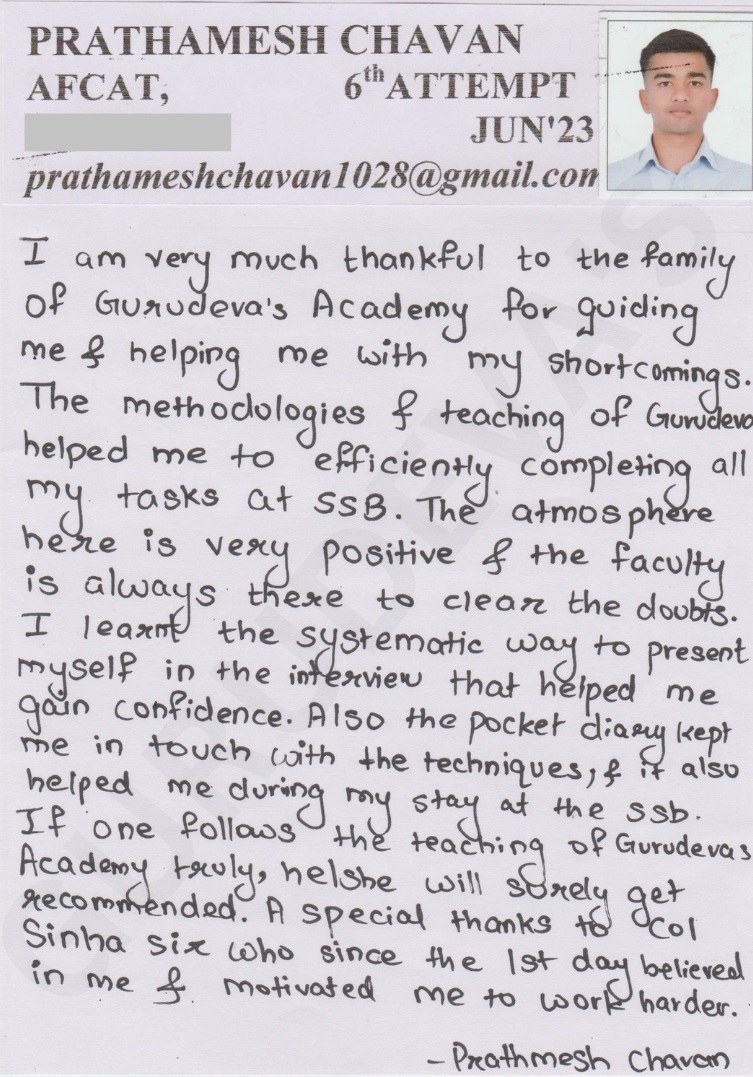 PRATHAMESH CHAVAN
AFCAT, 6th ATTEMPT
JUN'23
prathameshchavan1028@gmail.com
I am very much thankful to the family
of Gurudeva's Academy for guiding
me & helping me with my shortcomings.
The methodologies & teaching of Gurudeva
helped me to efficiently completing all
my tasks at SSB. The atmosphere
here is very positive & the faculty
is always there to clear the doubts.
I learnt the systematic way to present
myself in the interview that helped me
gain confidence. Also the pocket diary kept
me in touch with the techniques, & it also
helped me during my stay at the ssb.
If one follows the teaching of Gurudevas
Academy truly, he/she will surely get
recommended. A special thanks to Col
Sinha sir who since the 1st day believed
in me & motivated me to work harder.
- Prathmesh Chavan
GURUDEVA'S